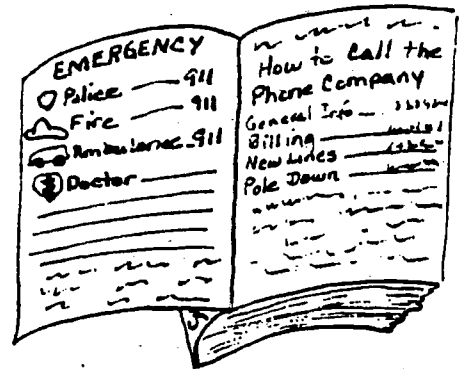 EMERGENCY
Police — 911
Fire — 911
Ambulance - 911
Doctor —
How to Call the
Phone Company
General Info —
Billing —
New Lines —
Pole Down —